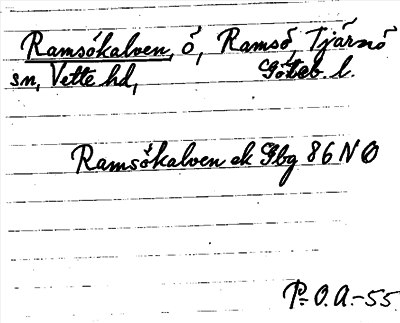 Ramsökalven, ö, Ramsö, Tjärnö
sn, Vette hd, Göteb. l.
Ramsökalven ek Gbg 86 NO
P-O.A.-55